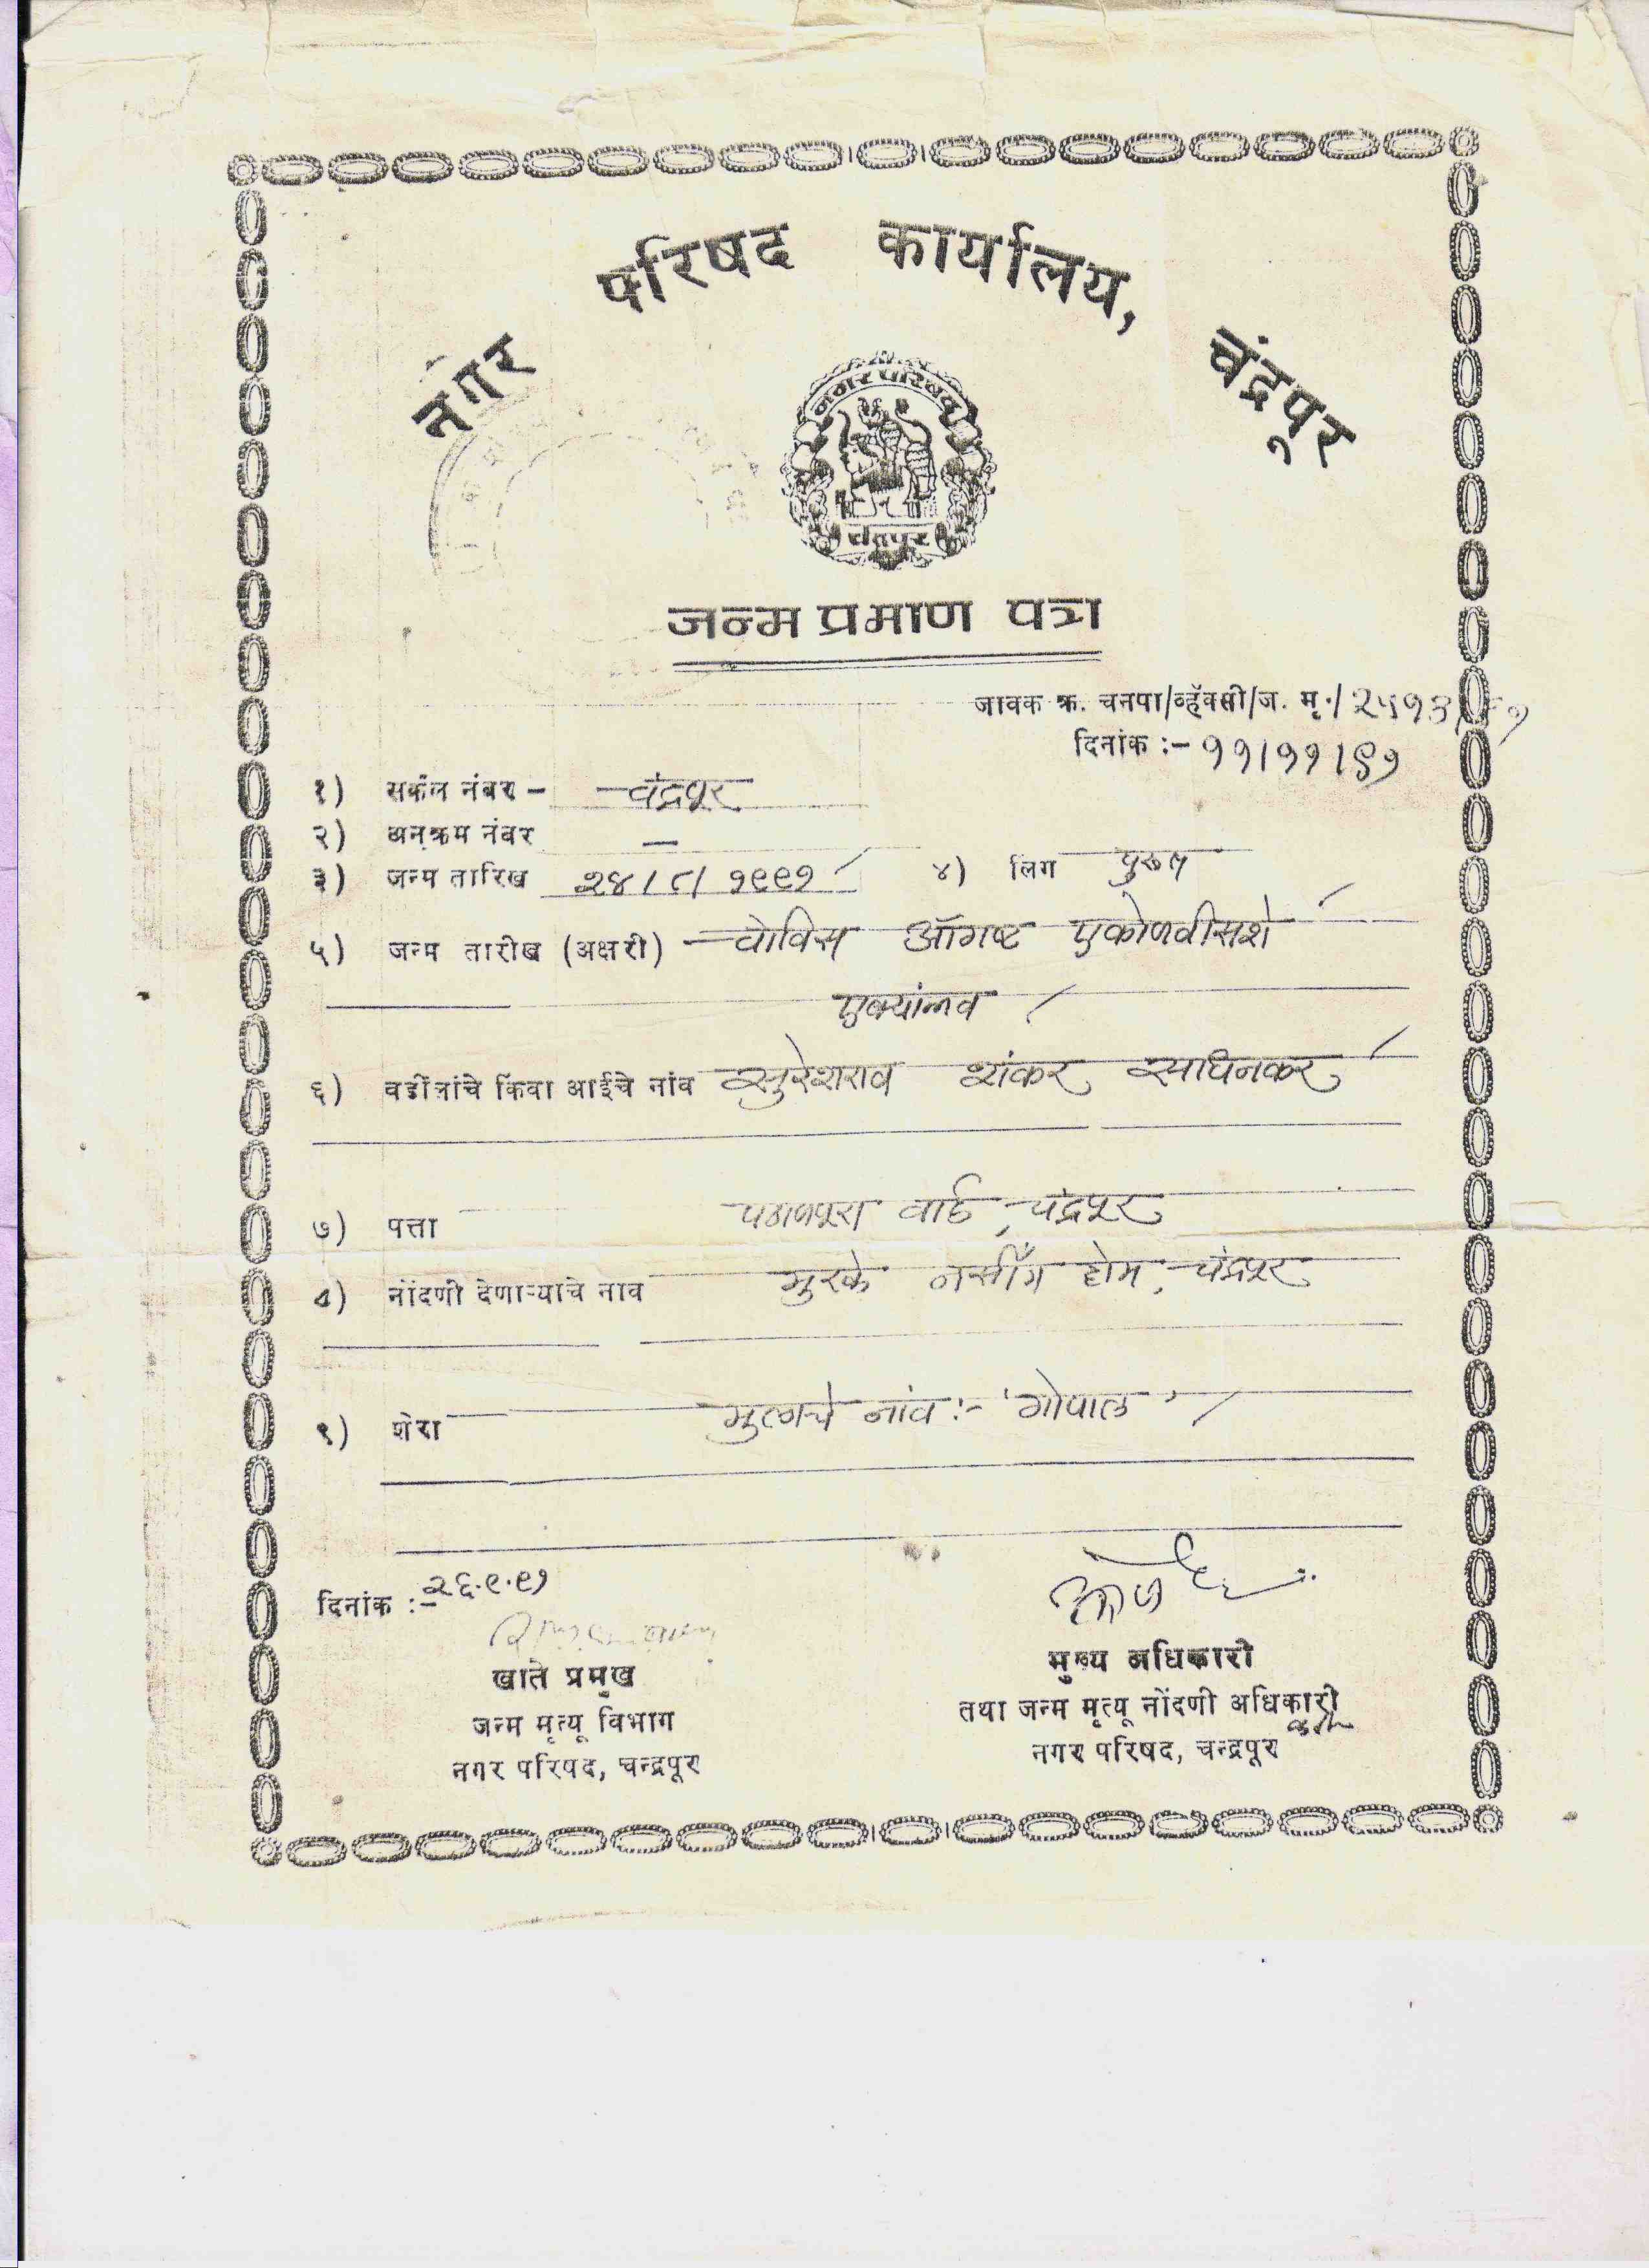 नगर परिषद कार्यालय, चंद्रपूर
नगर परिषद
चंद्रपूर
जन्म प्रमाण पत्र
जावक क्र. चनपा/व्हॅक्सी/ज. मृ./२५१३/९१
दिनांक :- ११/११/९१
१) सर्कल नंबर - चंद्रपूर
२) अनुक्रम नंबर —
३) जन्म तारिख २४/८/१९९१ ४) लिंग पुरूष
५) जन्म तारीख (अक्षरी) - चोविस ऑगष्ट एकोणवीसशे
एक्यांनव
६) वडीलांचे किंवा आईचे नांव सुरेशराव शंकर साधनकर
७) पत्ता पठाणपूरा वार्ड, चंद्रपूर
८) नोंदणी देणाऱ्याचे नाव मुरके नर्सींग होम, चंद्रपूर
९) शेरा मुलाचे नांव :- 'गोपाल'
दिनांक :- २६.९.९१
खाते प्रमुख
जन्म मृत्यू विभाग
नगर परिषद, चन्द्रपूर
मुख्य अधिकारी
तथा जन्म मृत्यू नोंदणी अधिकारी
नगर परिषद, चन्द्रपूर